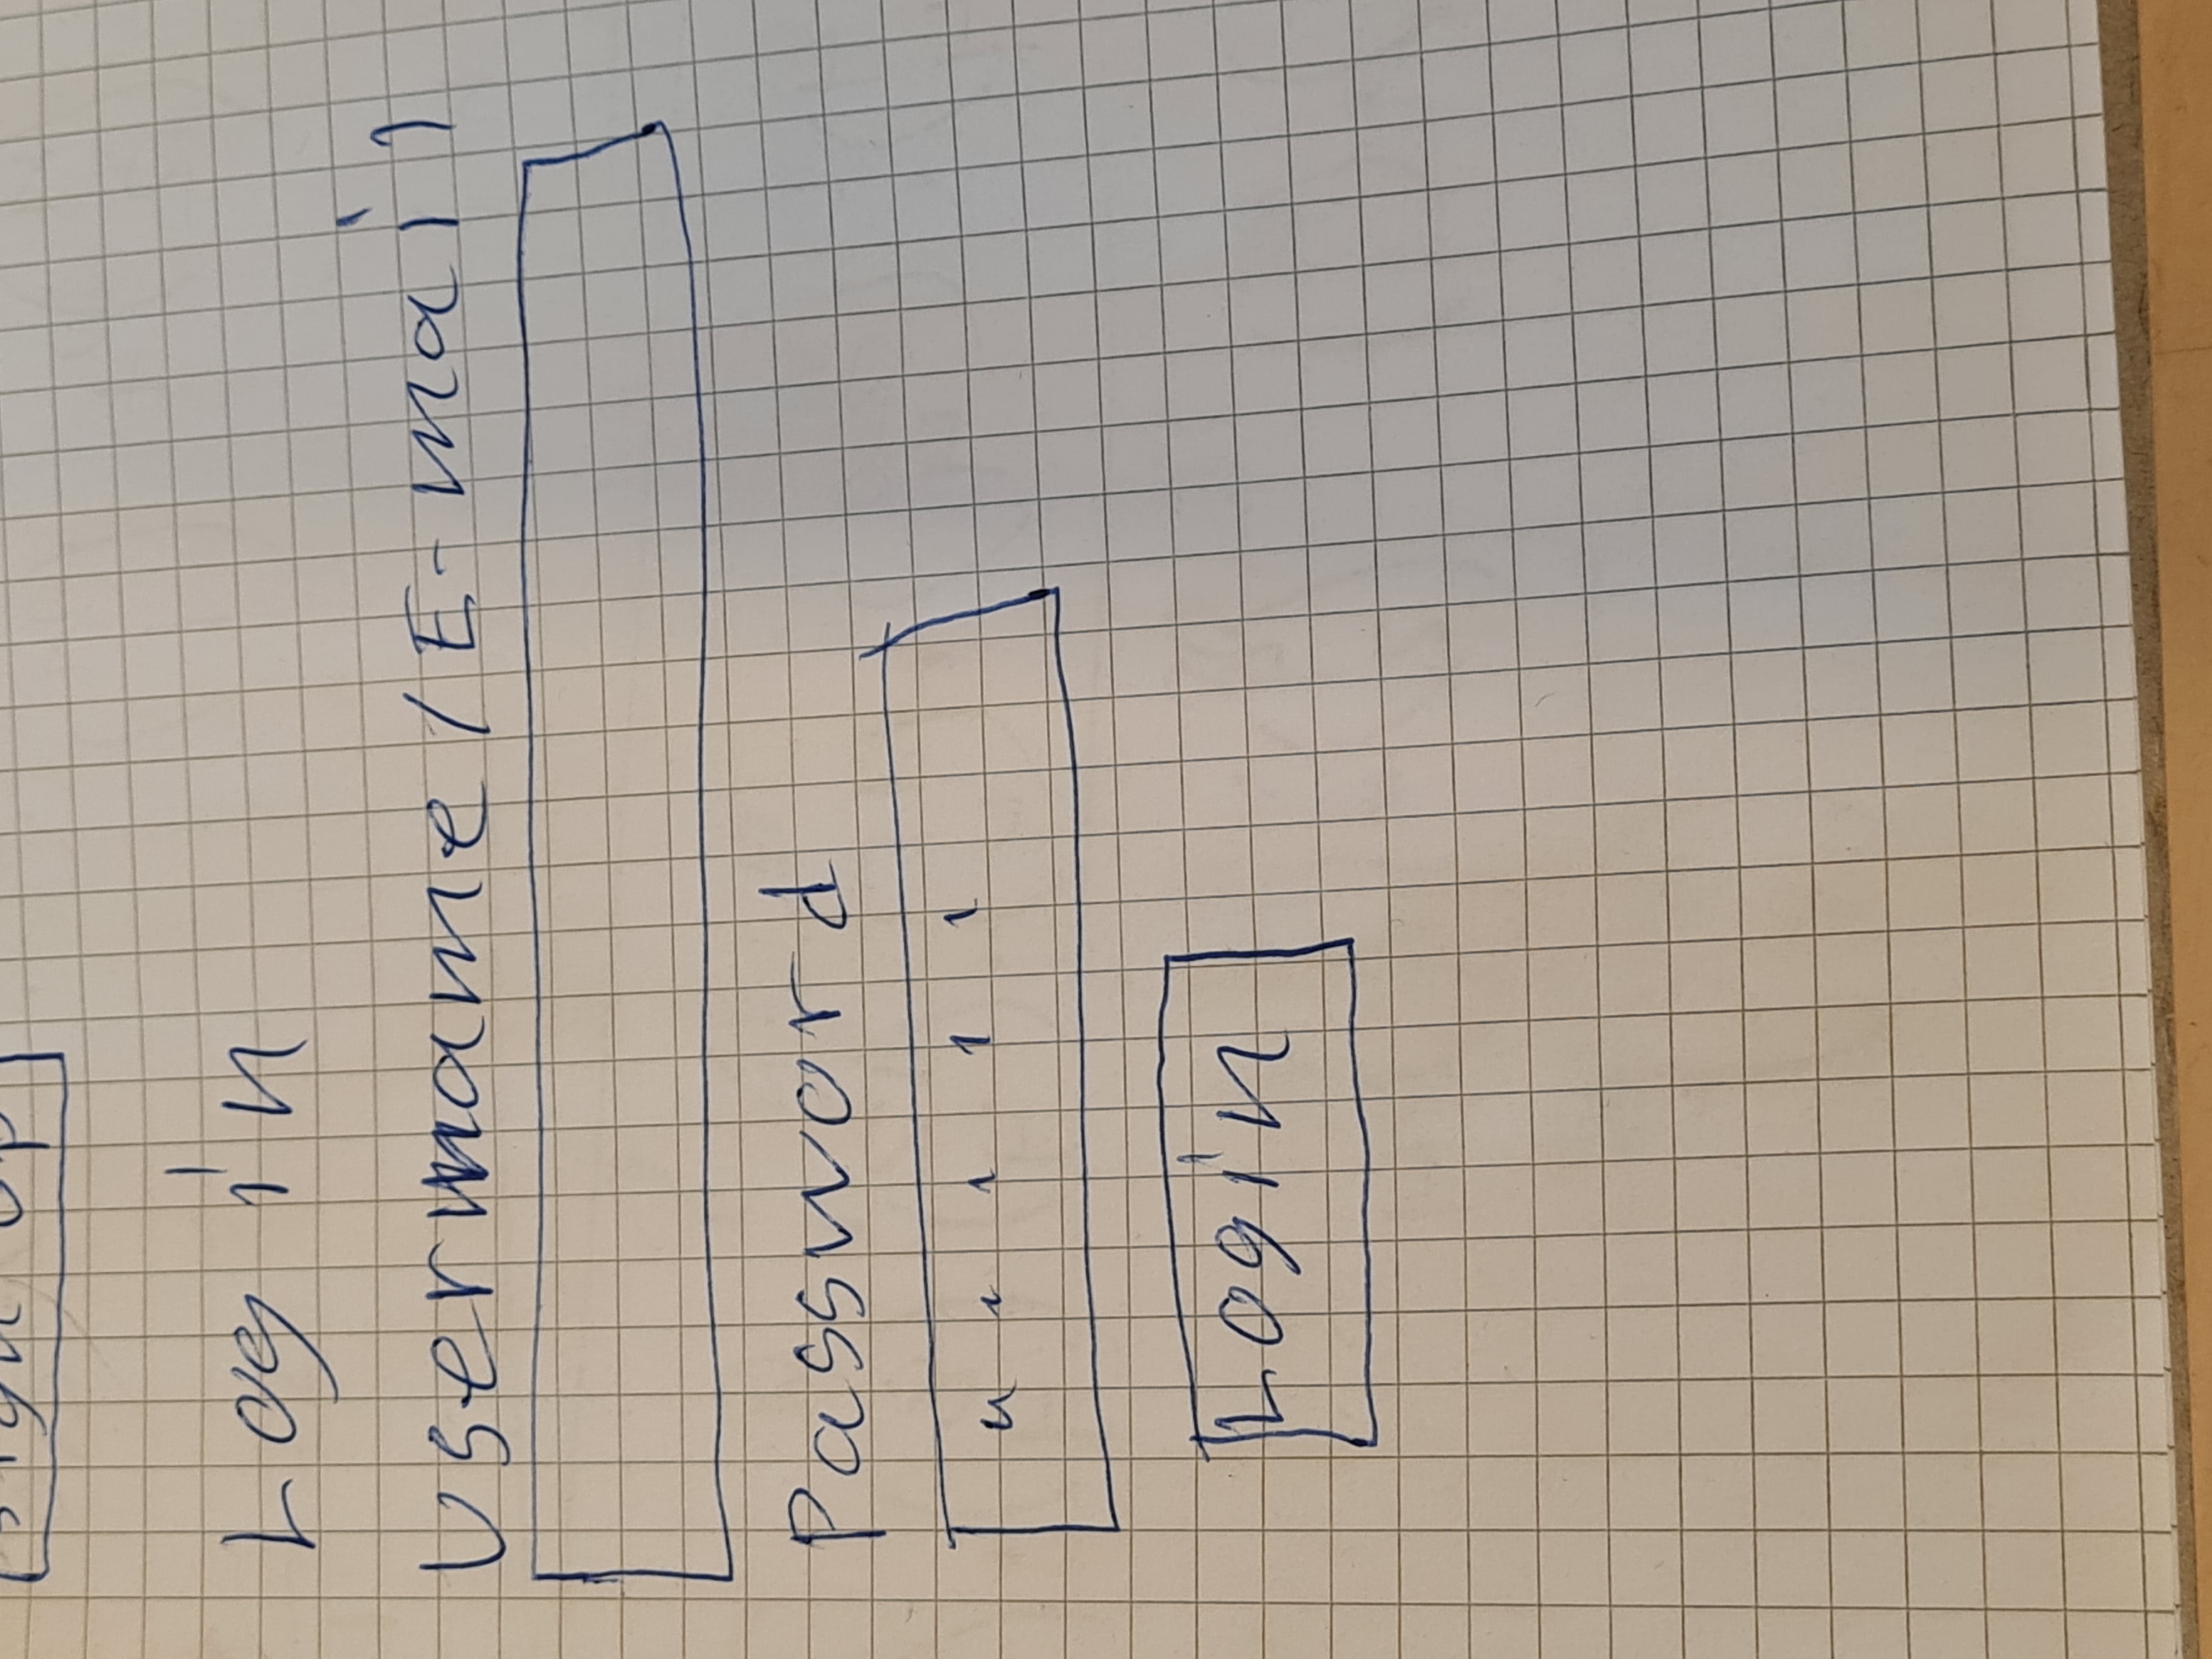 Sign Up
Log in
Username/E-mail
Password
Login